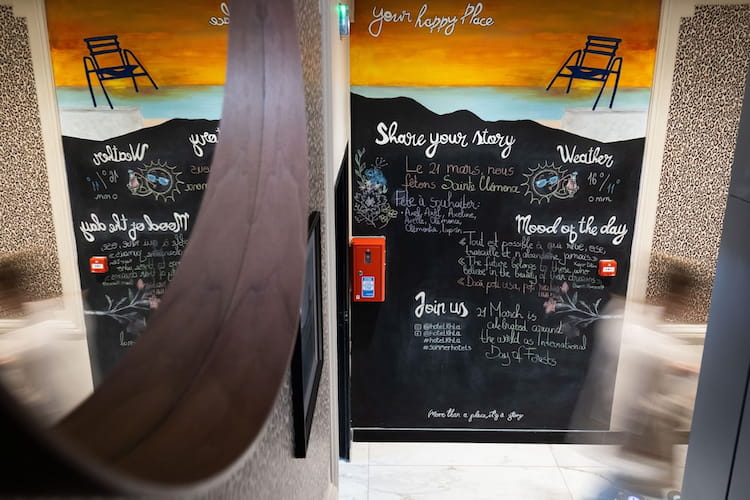 your happy Place
Share your story
Le 21 mars, nous
fêtons Sainte Clémence
Fête à souhaiter:
Axel, Axèl, Aveline,
Clémence,
Weather
16°
mm
11
Mood of the day
«Tout est possible à qui rêve, ose,
travaille et n'abandonne jamais»
«The future belongs to those who
believe in the beauty of their dreams
Join us
@hotel.lhla
@hotel.lhla
#hotellhla
#summerhotels
21 March is
celebrated around
the world as International
Day of Forests
More than a place, it's a story